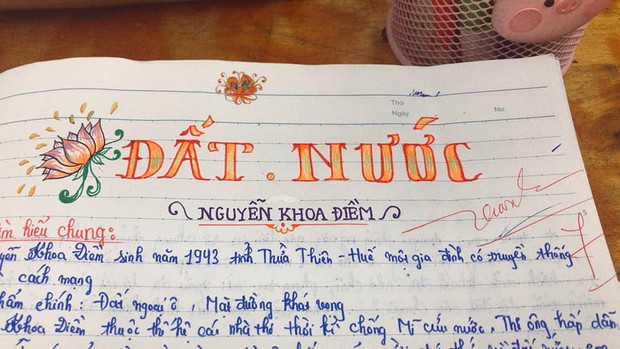 Thứ
Ngày
No.
ĐẤT. NƯỚC
NGUYỄN KHOA ĐIỀM
ìm hiểu chung:
uyễn Khoa Điềm sinh năm 1943 tỉnh Thừa Thiên - Huế một gia đình có truyền thống
cách mạng
hẩm chính: Đất ngoại ô, Mặt đường khát vọng
Khoa Điềm thuộc thế hệ các nhà thơ thời kì chống Mĩ cứu nước, Thơ ông hấp dẫn